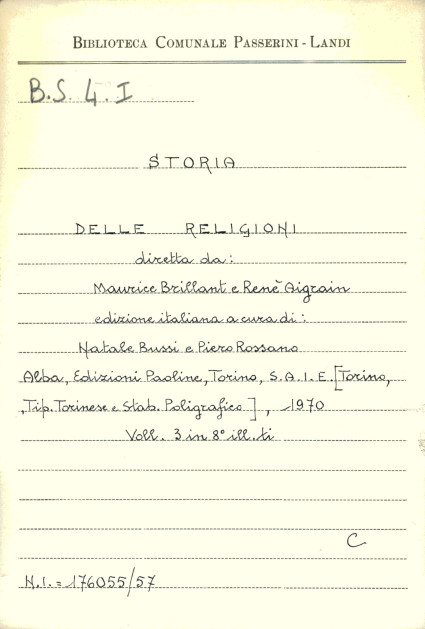 BIBLIOTECA COMUNALE PASSERINI - LANDI
B.S. 4. I
STORIA
DELLE RELIGIONI
diretta da:
Maurice Brillant e Renè Aigrain
edizione italiana a cura di:
Natale Bussi e Piero Rossano
Alba, Edizioni Paoline, Torino, S.A.I.E. [Torino,
,Tip. Torinese e Stab. Poligrafico], 1970
Voll. 3 in 8° ill.ti
C
N.I. = 176055/57